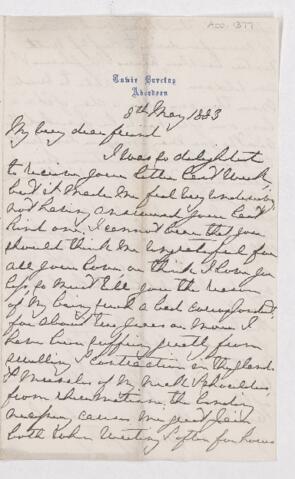 ACC. 1377
Towie Barclay
Aberdeen
8th May 1883
My very dear friend
I was so delighted
to receive your letter last week,
but it made me feel very
not having answered your last
kind one. I cannot bear that you
should think me ungrateful for
all your love, or think I love you
less, so must tell you the reason
of my being such a bad correspondent
for about two years or more I
have been suffering greatly from
swelling & contraction in the glands
& muscles of my neck & shoulders
from rheumatism, the
causes me great pain
both when writing & often for hours